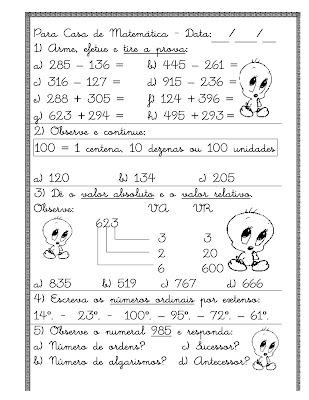 Para Casa de Matemática - Data: __/__/__
1) Arme, efetue e tire a prova:
a) 285 - 136 = b) 445 - 261 =
c) 316 - 127 = d) 915 - 236 =
e) 288 + 305 = f) 124 + 396 =
g) 623 + 294 = h) 495 + 293 =
2) Observe e continue:
100 = 1 centena, 10 dezenas ou 100 unidades
a) 120 b) 134 c) 205
3) Dê o valor absoluto e o valor relativo.
Observe: VA VR
623
3 3
2 20
6 600
a) 835 b) 519 c) 767 d) 666
4) Escreva os números ordinais por extenso:
14º. - 23º. - 100º. - 95º. - 72º. - 61º.
5) Observe o numeral 985 e responda:
a) Número de ordens? c) Sucessor?
b) Número de algarismos? d) Antecessor?